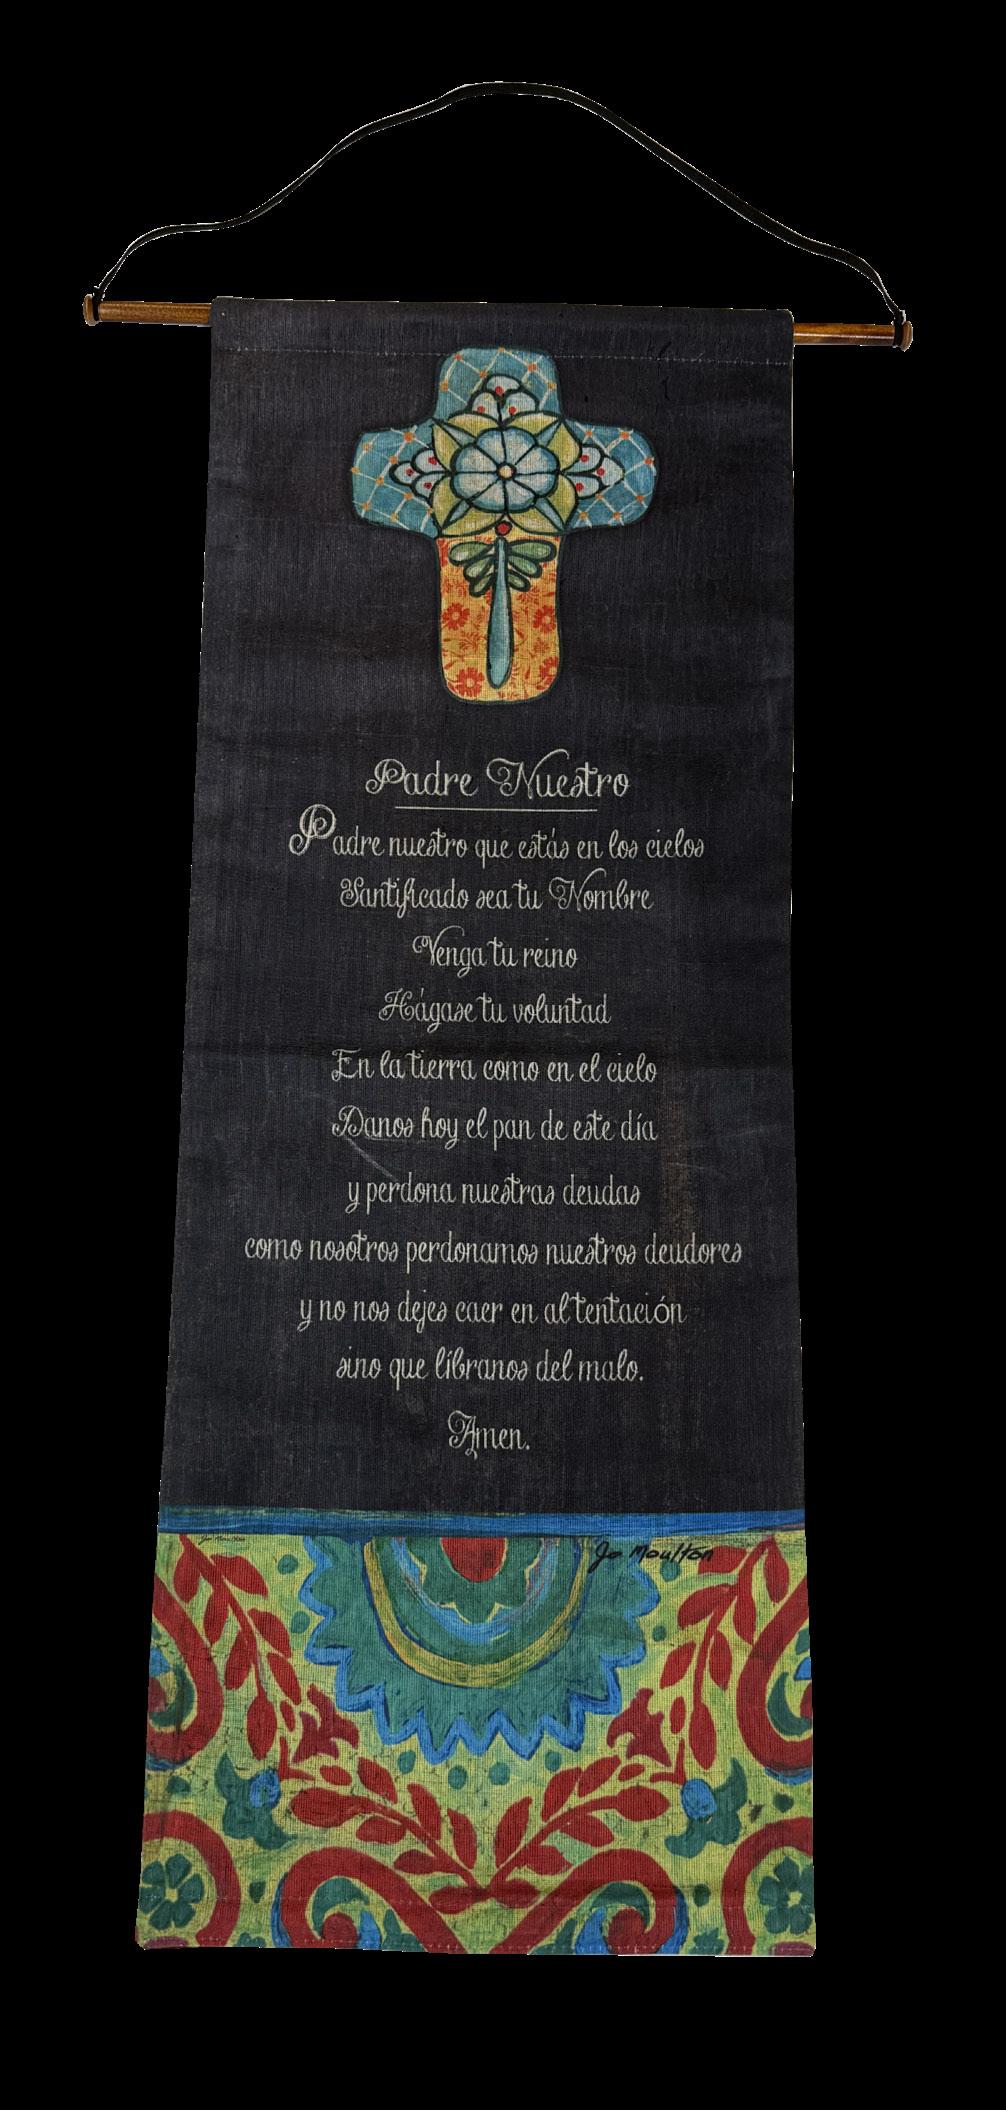 Padre Nuestro
Padre nuestro que estás en los cielos
Santificado sea tu Nombre
Venga tu reino
Hágase tu voluntad
En la tierra como en el cielo
Danos hoy el pan de este día
y perdona nuestras deudas
como nosotros perdonamos nuestros deudores
y no nos dejes caer en al tentación
sino que líbranos del malo.
Amen.
Jo Moulton
Jo Moulton